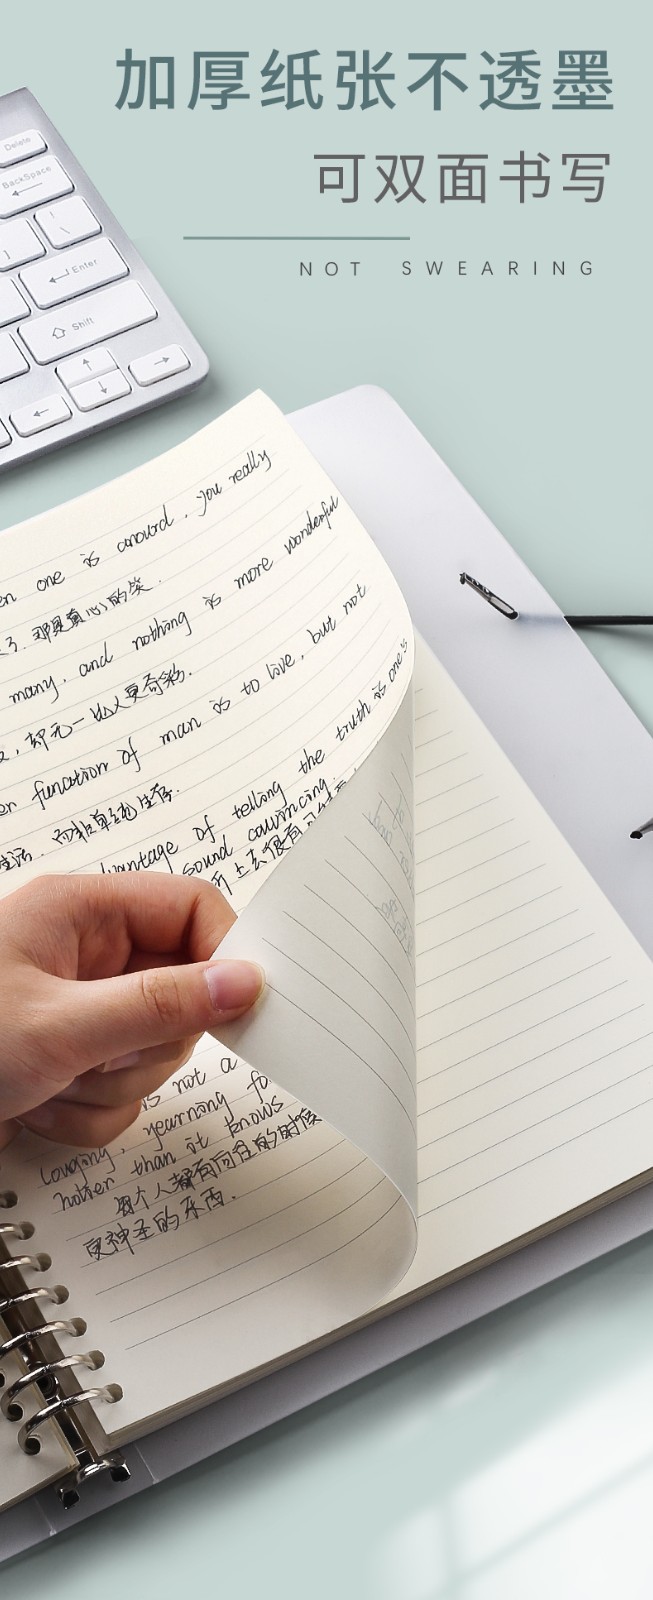 加厚纸张不透墨
可双面书写
NOT SWEARING
Delete
BackSpace
Enter
Shift
one is around. you really
那是真心的笑.
many, and nothing is more wonderful
却无一比人更奇彩.
function of man is to live, but not
而非单纯生存.
of telling the truth is one's
sound convincing.
听上去很有
is not a
Longing, yearning
hotter than it knows
每个人都有向往的时候
更神圣的东西.